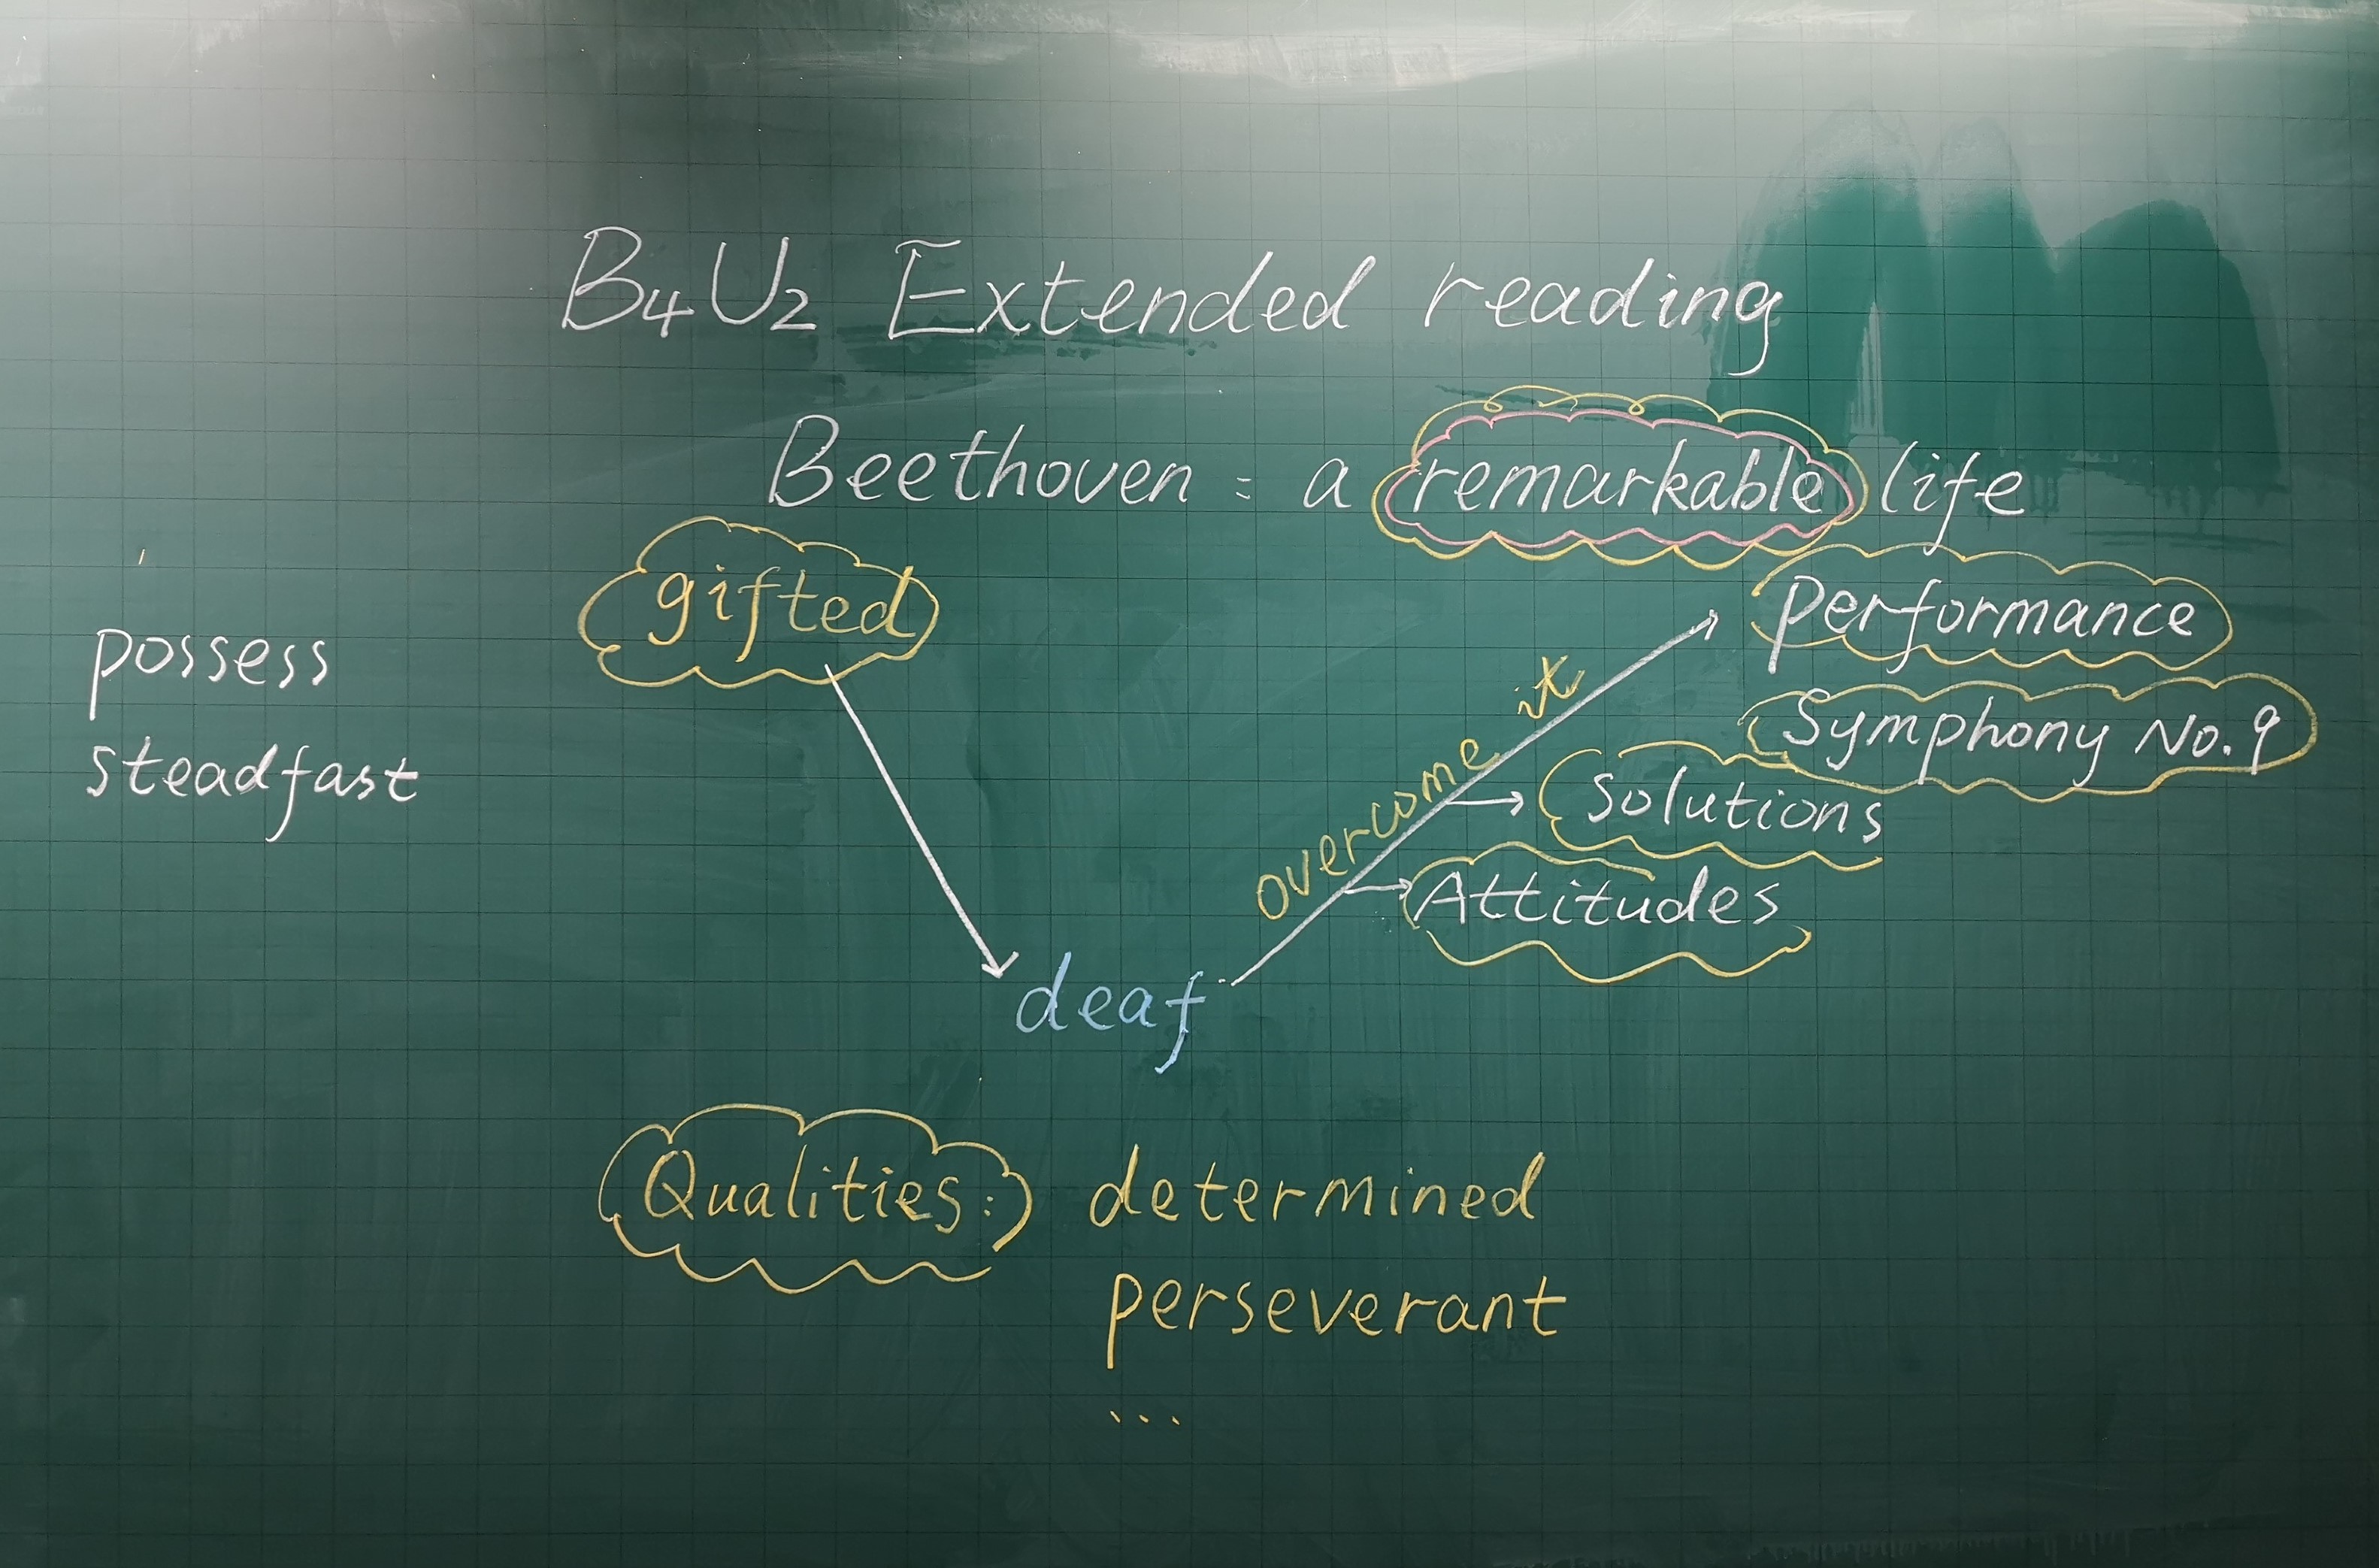 B4U2 Extended reading
Beethoven: a remarkable life
possess
steadfast
gifted
deaf
overcome it
Performance
Symphony No.9
Solutions
Attitudes
Qualities: determined
perseverant
...